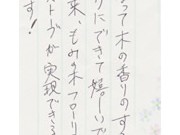 って木の香りのする
りにできて嬉しいで
来、もみの木フローリ
ーブが実現できる
す!